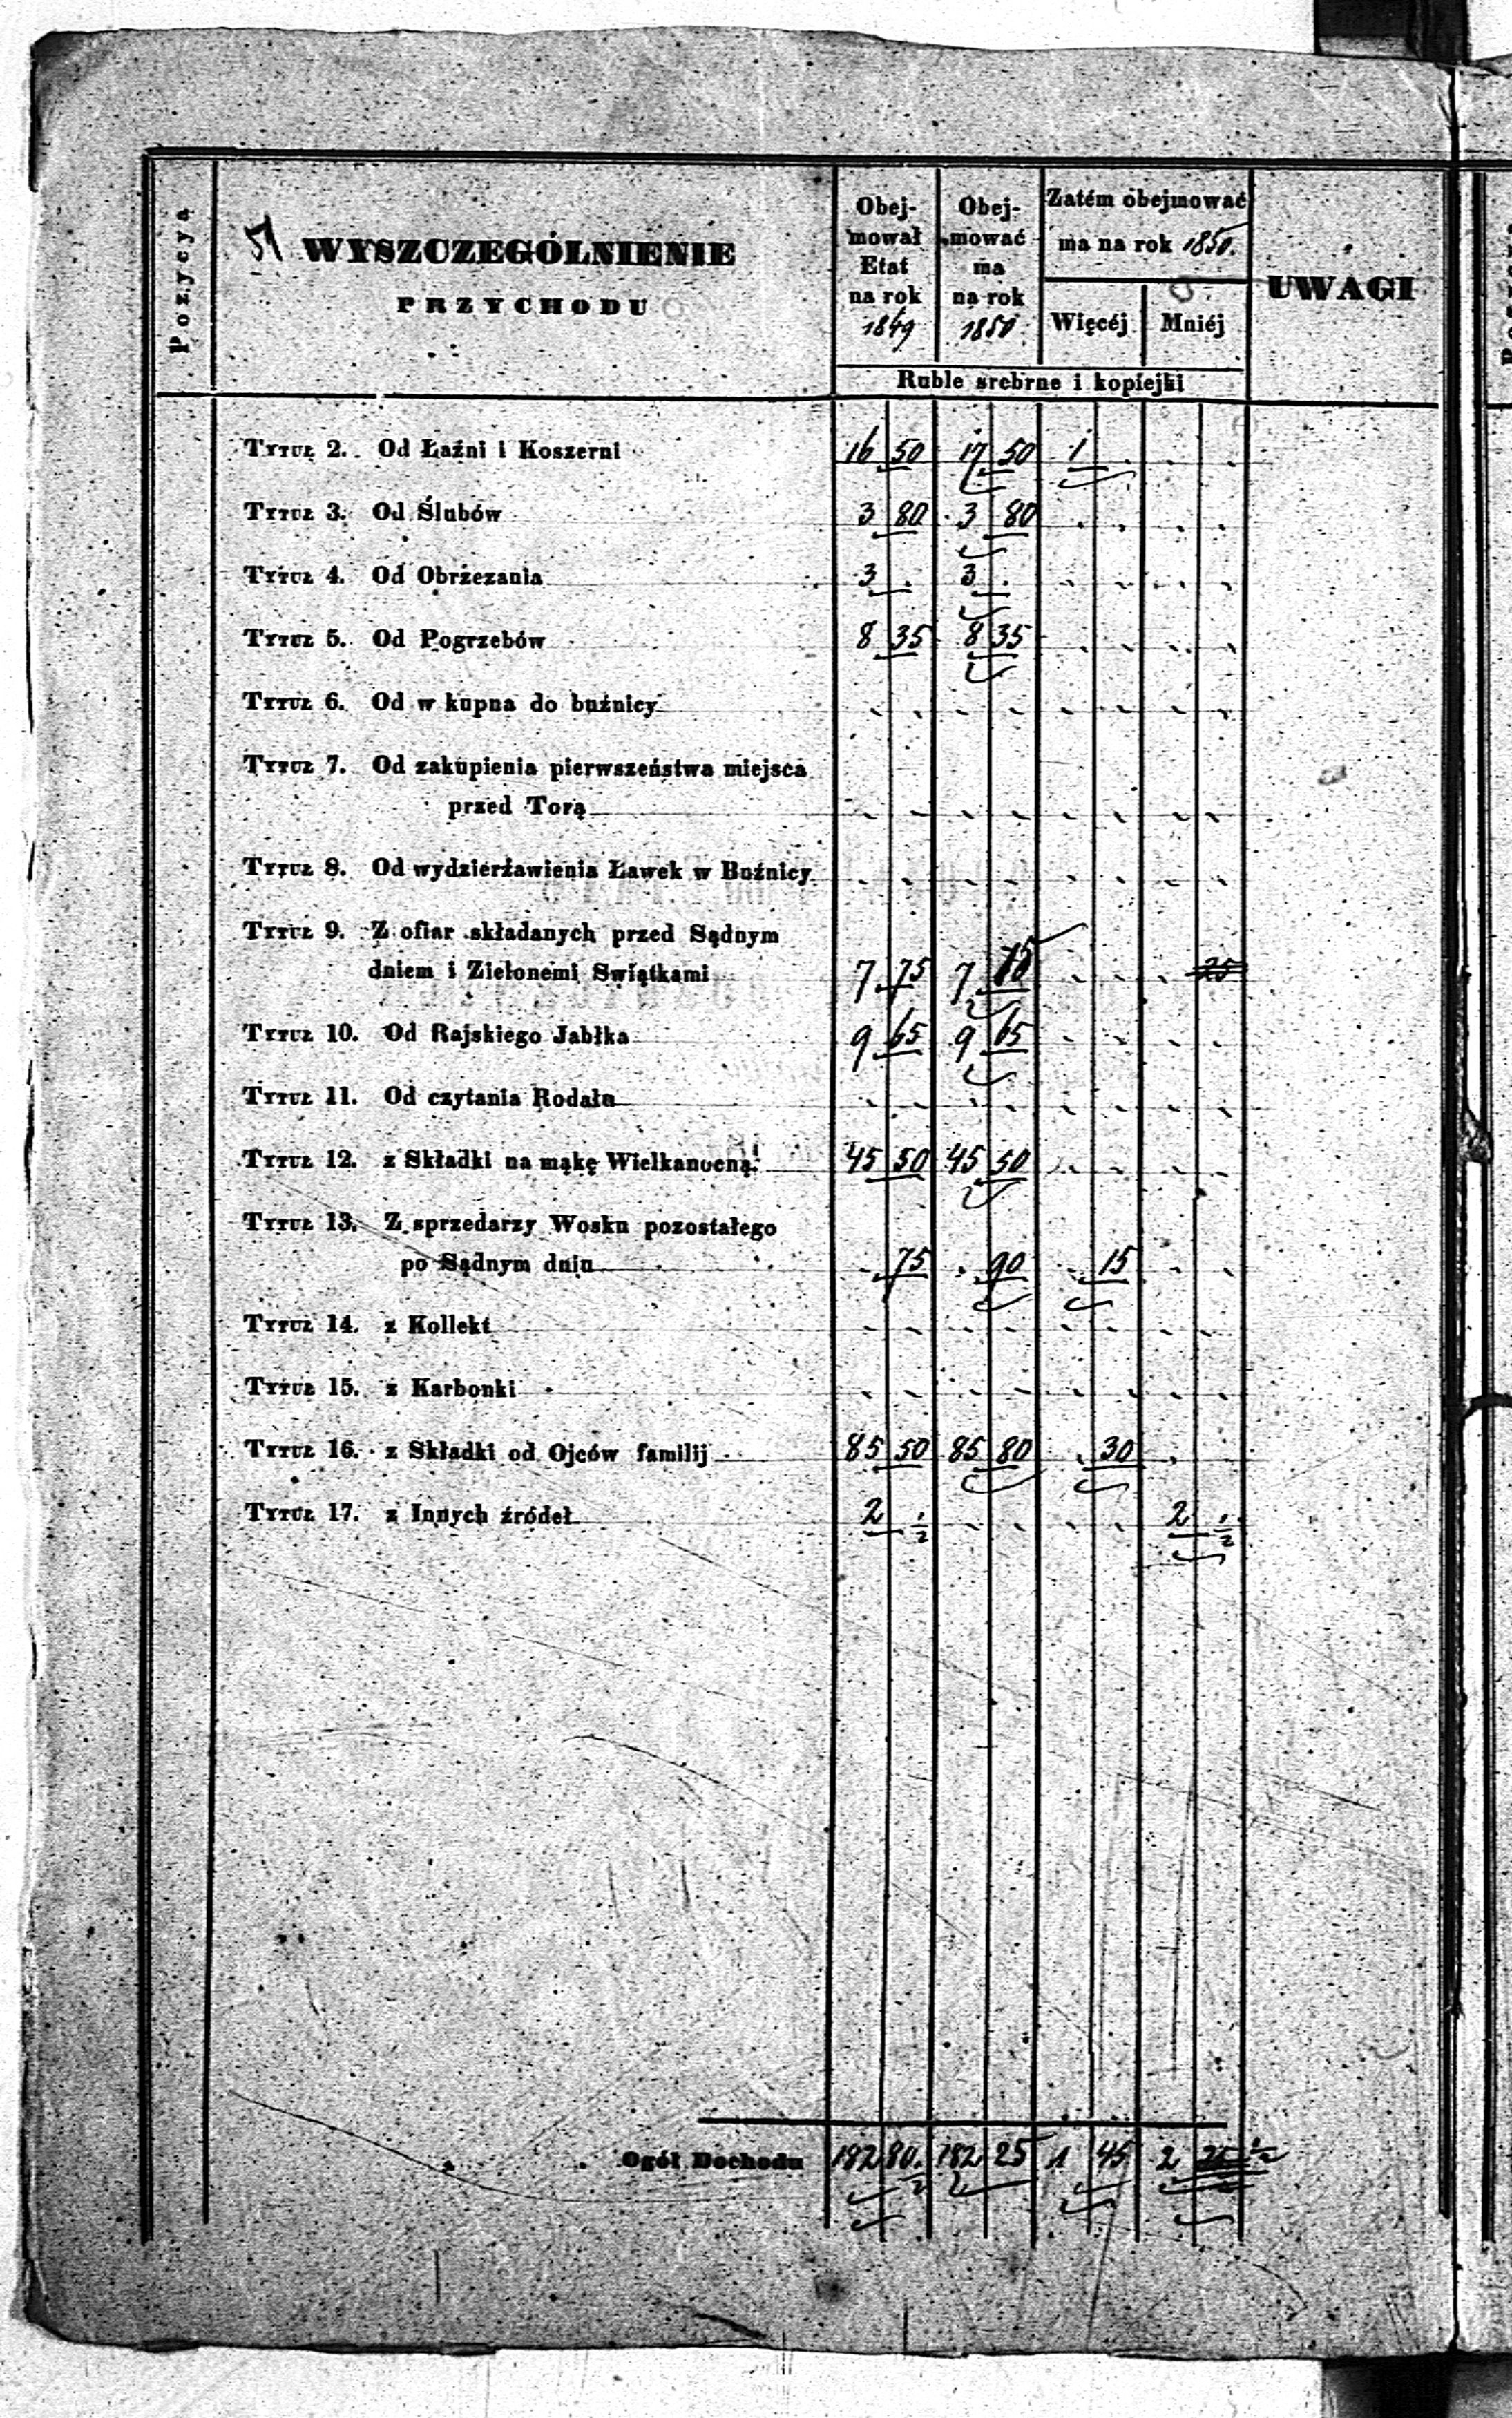 Pozycya
51 WYSZCZEGÓLNIENIE
PRZYCHODU
Obej-
mował
Etat
na rok
1849
Obej-
mować
ma
na rok
1850
Zatém obejmować
ma na rok 1850.
Więcéj Mniéj
UWAGI
Ruble srebrne i kopiejki
Tytuł 2. Od Łaźni i Koszerni 16 50 17 50 1
Tytuł 3. Od Ślubów 3 80 3 80
Tytuł 4. Od Obrzezania 3 . 3 .
Tytuł 5. Od Pogrzebów 8 35 8 35
Tytuł 6. Od w kupna do buźnicy
Tytuł 7. Od zakupienia pierwszeństwa miejsca
przed Torą
Tytuł 8. Od wydzierżawienia Ławek w Buźnicy
Tytuł 9. Z ofiar składanych przed Sądnym
dniem i Zielonemi Swiątkami 7 75 7 75 25
Tytuł 10. Od Rajskiego Jabłka 9 65 9 65
Tytuł 11. Od czytania Rodału
Tytuł 12. z Składki na mąkę Wielkanocną 45 50 45 50
Tytuł 13. Z sprzedarzy Wosku pozostałego
po Sądnym dniu 75 90 15
Tytuł 14. z Kollekt
Tytuł 15. z Karbonki
Tytuł 16. z Składki od Ojców familij 85 50 85 80 30
Tytuł 17. z Innych źródeł 2 ½ 2 ½
Ogół Dochodu 182 80 ½ 182 25 1 45 2 ½